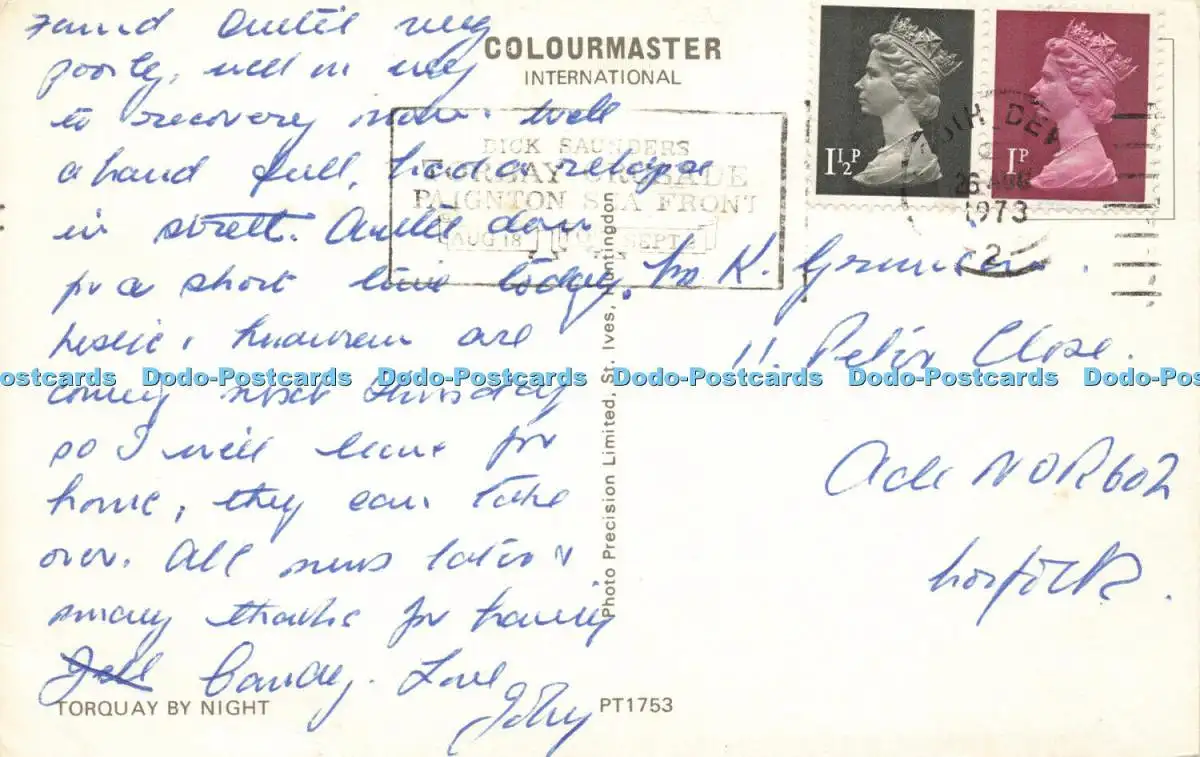 COLOURMASTER
INTERNATIONAL
1½P
1P
SOUTH DEV
26 AUG
1973
2
DICK SAUNDERS
TORBAY CRUSADE
PAIGNTON SEA FRONT
AUG 18 TO SEPT
found Auntie very
poorly, well on way
to recovery now. Well
a hand full, had a relapse
in street. Auntie down
for a short time today.
Leslie & are
coming next Thursday
so I will leave for
home, they can take
over. All news later &
many thanks for having
Candy. Love
TORQUAY BY NIGHT
PT1753
Photo Precision Limited, St. Ives, Huntingdon
K.
11. Close.
Acle NOR602
Norfolk.
Dodo-Postcards Dodo-Postcards Dodo-Postcards Dodo-Postcards Dodo-Postcards